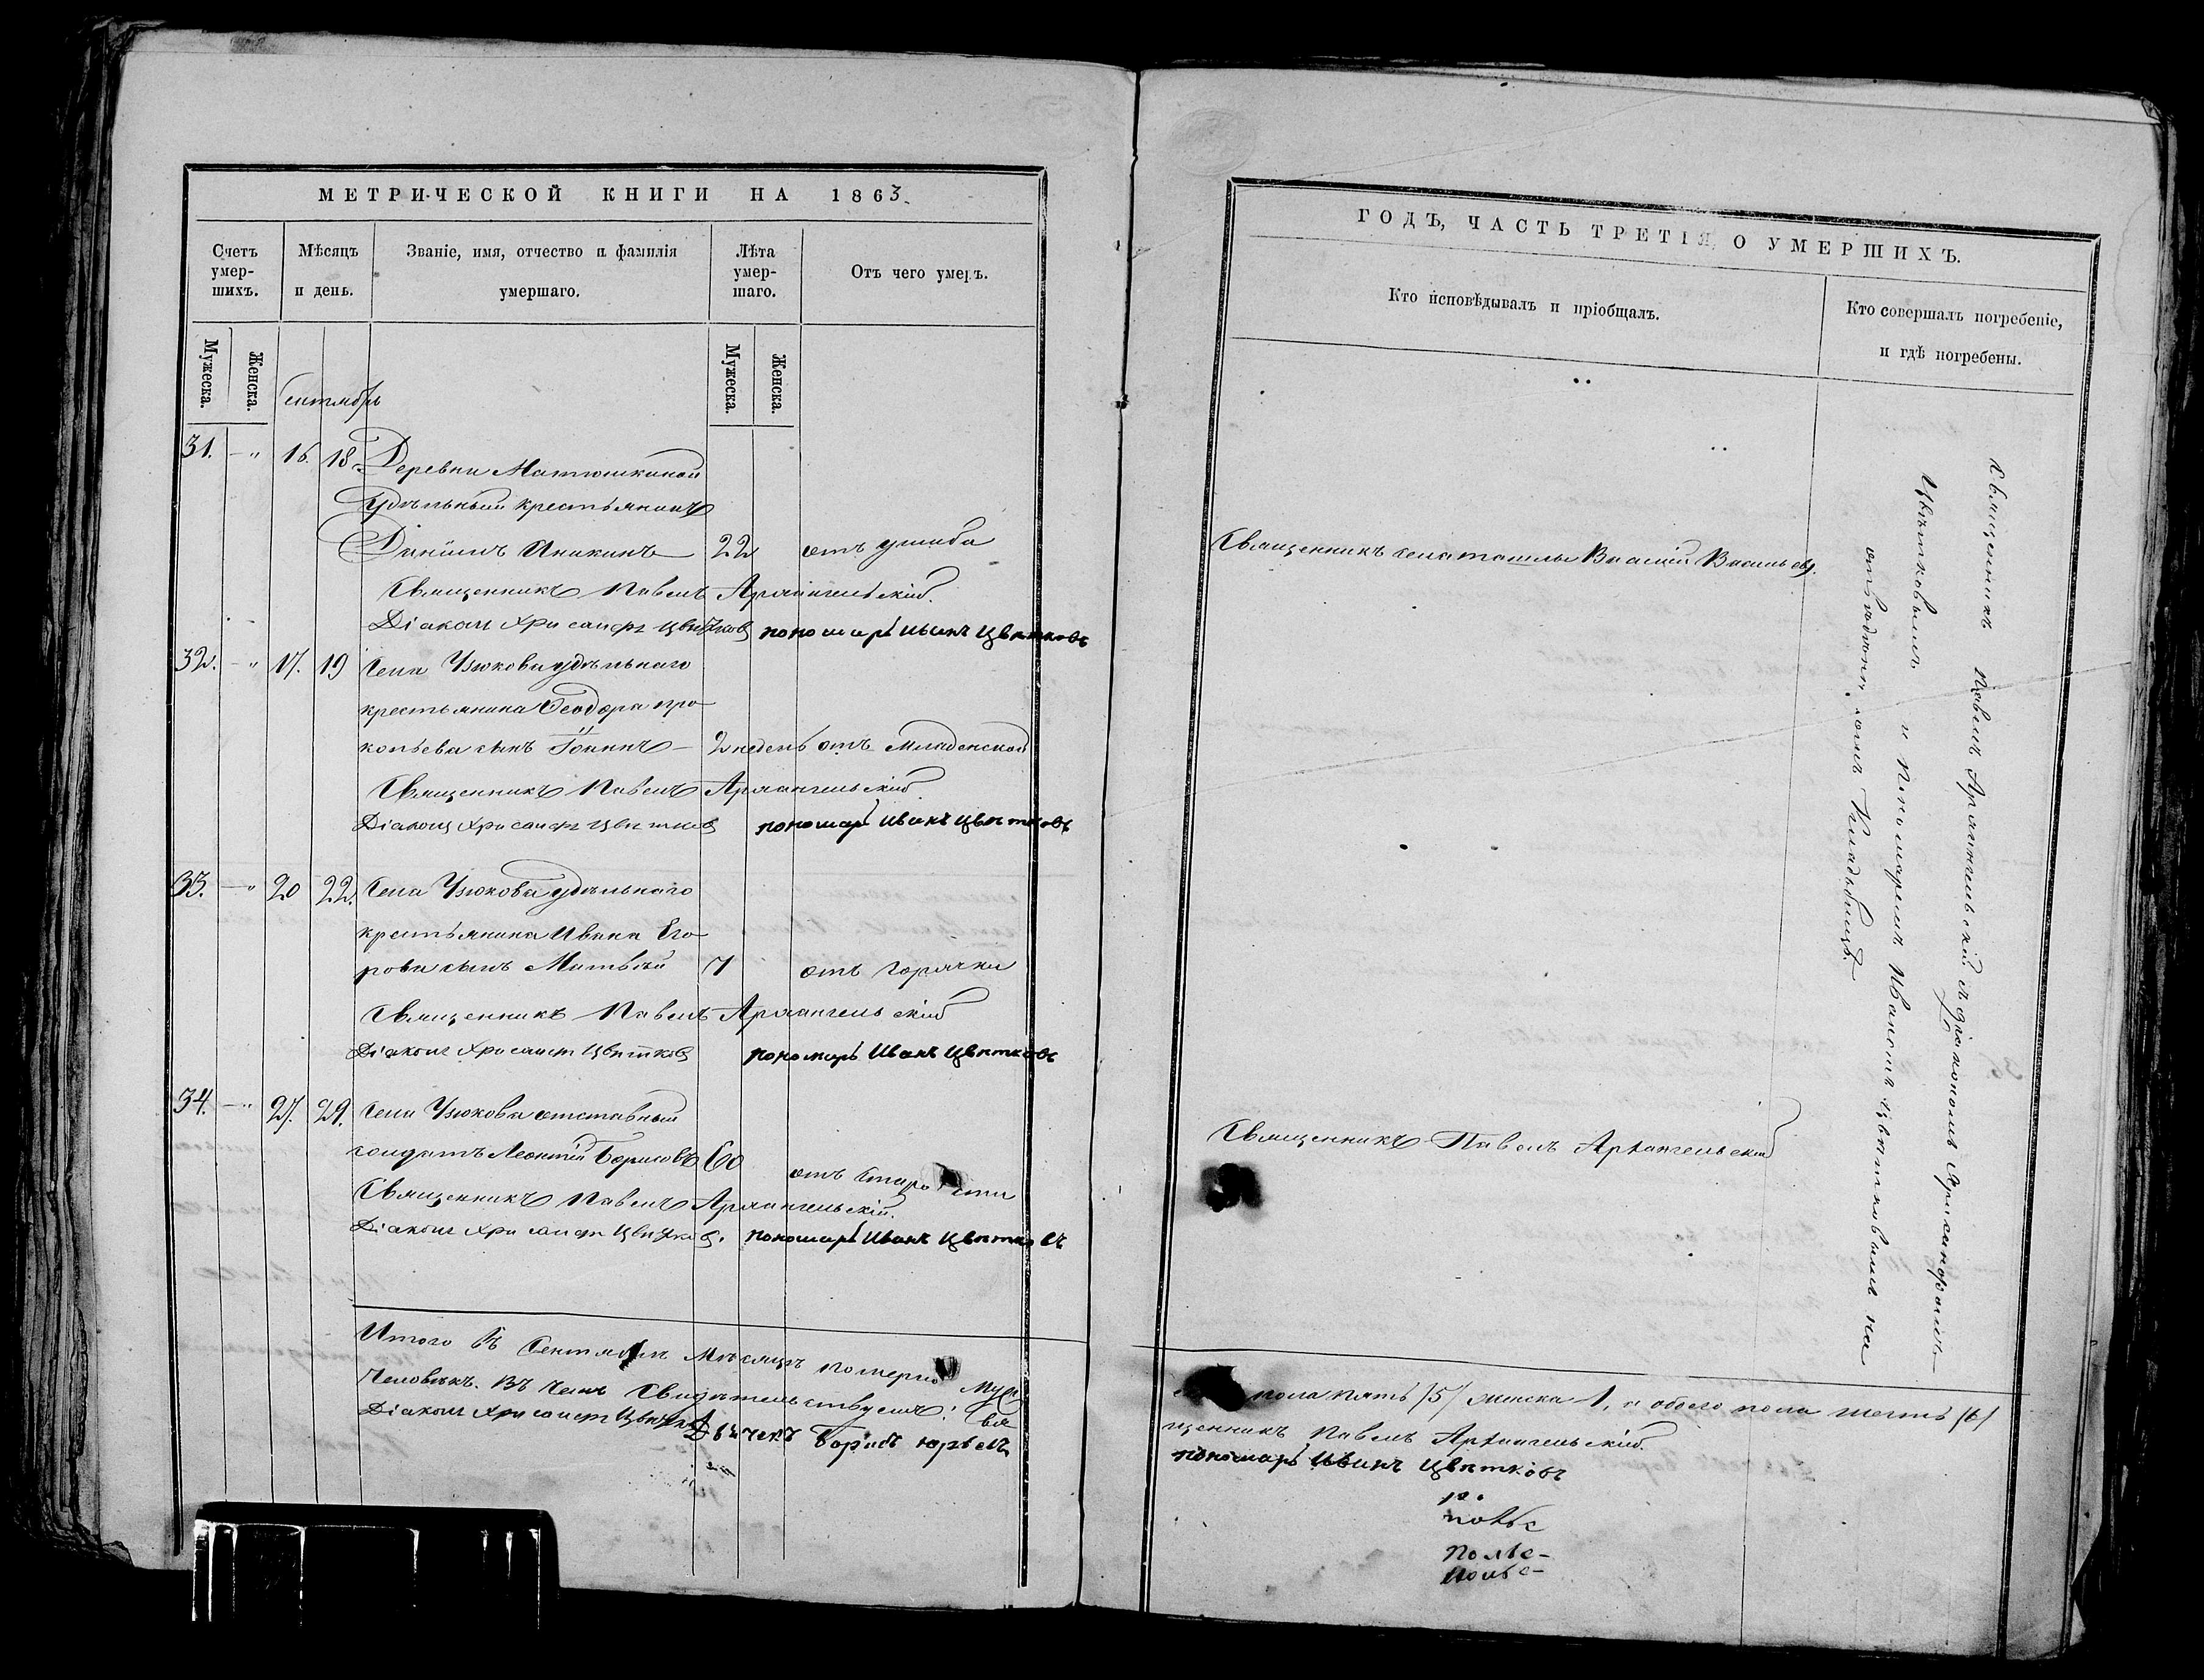 МЕТРИЧЕСКОЙ КНИГИ НА 1863.
Счетъ умер-шихъ.
Мѣсяцъ и день.
Званіе, имя, отчество и фамилія умершаго.
Лѣта умер-шаго.
Отъ чего умеръ.
Мужеска.
Женска.
Мужеска.
Женска.
Сентябрь
31. — " 16. 18. Деревни Матюшкиной
удѣльный крестьянинъ
Даніилъ Аникинъ 22 отъ ушиба
Священникъ Павелъ Архангельскій.
Діаконъ Хрисанфъ Цвѣтковъ пономарь Иванъ Цвѣтковъ
32. — " 17. 19 Села Узюкова удѣльнаго
крестьянина Ѳеодора про-
копьева сынъ Іоаннъ — 2 недель отъ младенской
Священникъ Павелъ Архангельскій
Діаконъ Хрисанфъ Цвѣтковъ пономарь Иванъ Цвѣтковъ
33. — " 20 22. Села Узюкова удѣльнаго
крестьянина Ивана Его-
рова сынъ Матвѣй 7 отъ горячки
Священникъ Павелъ Архангельскій
Діаконъ Хрисанфъ Цвѣтковъ пономарь Иванъ Цвѣтковъ
34. — " 27. 29. Села Узюкова отставный
солдатъ Леонтій Борисовъ 60 отъ старости
Священникъ Павелъ Архангельскій.
Діаконъ Хрисанфъ Цвѣтковъ. пономарь Иванъ Цвѣтковъ
Итого въ Сентябрѣ мѣсяцѣ померло муж
Человѣкъ. Въ чемъ свидѣтельствуемъ: Свя
Діаконъ Хрисанфъ Цвѣтковъ Дьячекъ Борисъ Юрьевъ
ГОДЪ, ЧАСТЬ ТРЕТІЯ, О УМЕРШИХЪ.
Кто исповѣдывалъ и пріобщалъ.
Кто совершалъ погребеніе, и гдѣ погребены.
Священникъ села ташлы Василій Васильевъ.
Священникъ Павелъ Архангельскій
Священникъ Павелъ Архангельскій съ діакономъ Хрисанфомъ
Цвѣтковымъ и Пономаремъ Иваномъ Цвѣтковымъ на
отведенномъ Кладбищѣ.
пола пять /5/ женска 1, и обоего пола шесть /6/
щенникъ Павелъ Архангельскій.
пономарь Иванъ Цвѣтковъ